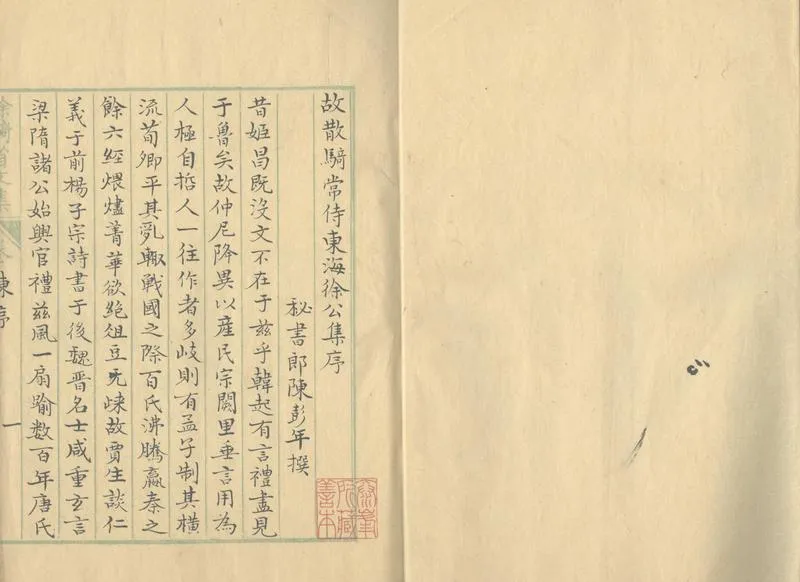 故散騎常侍東海徐公集序
秘書郎陳彭年撰
昔姬昌既沒文不在于茲乎韓起有言禮盡見
于魯矣故仲尼降異以産民宗闕里垂言用為
人極自哲人一往作者多岐則有孟子制其横
流荀卿平其亂轍戰國之際百氏沸騰嬴秦之
餘六經煨燼菁華欲絶俎豆旡崃故賈生談仁
義于前楊子宗詩書于後魏晋名士咸重玄言
梁隋諸公始興官禮茲風一扇踰数百年唐氏
陳序
一
藏
善本